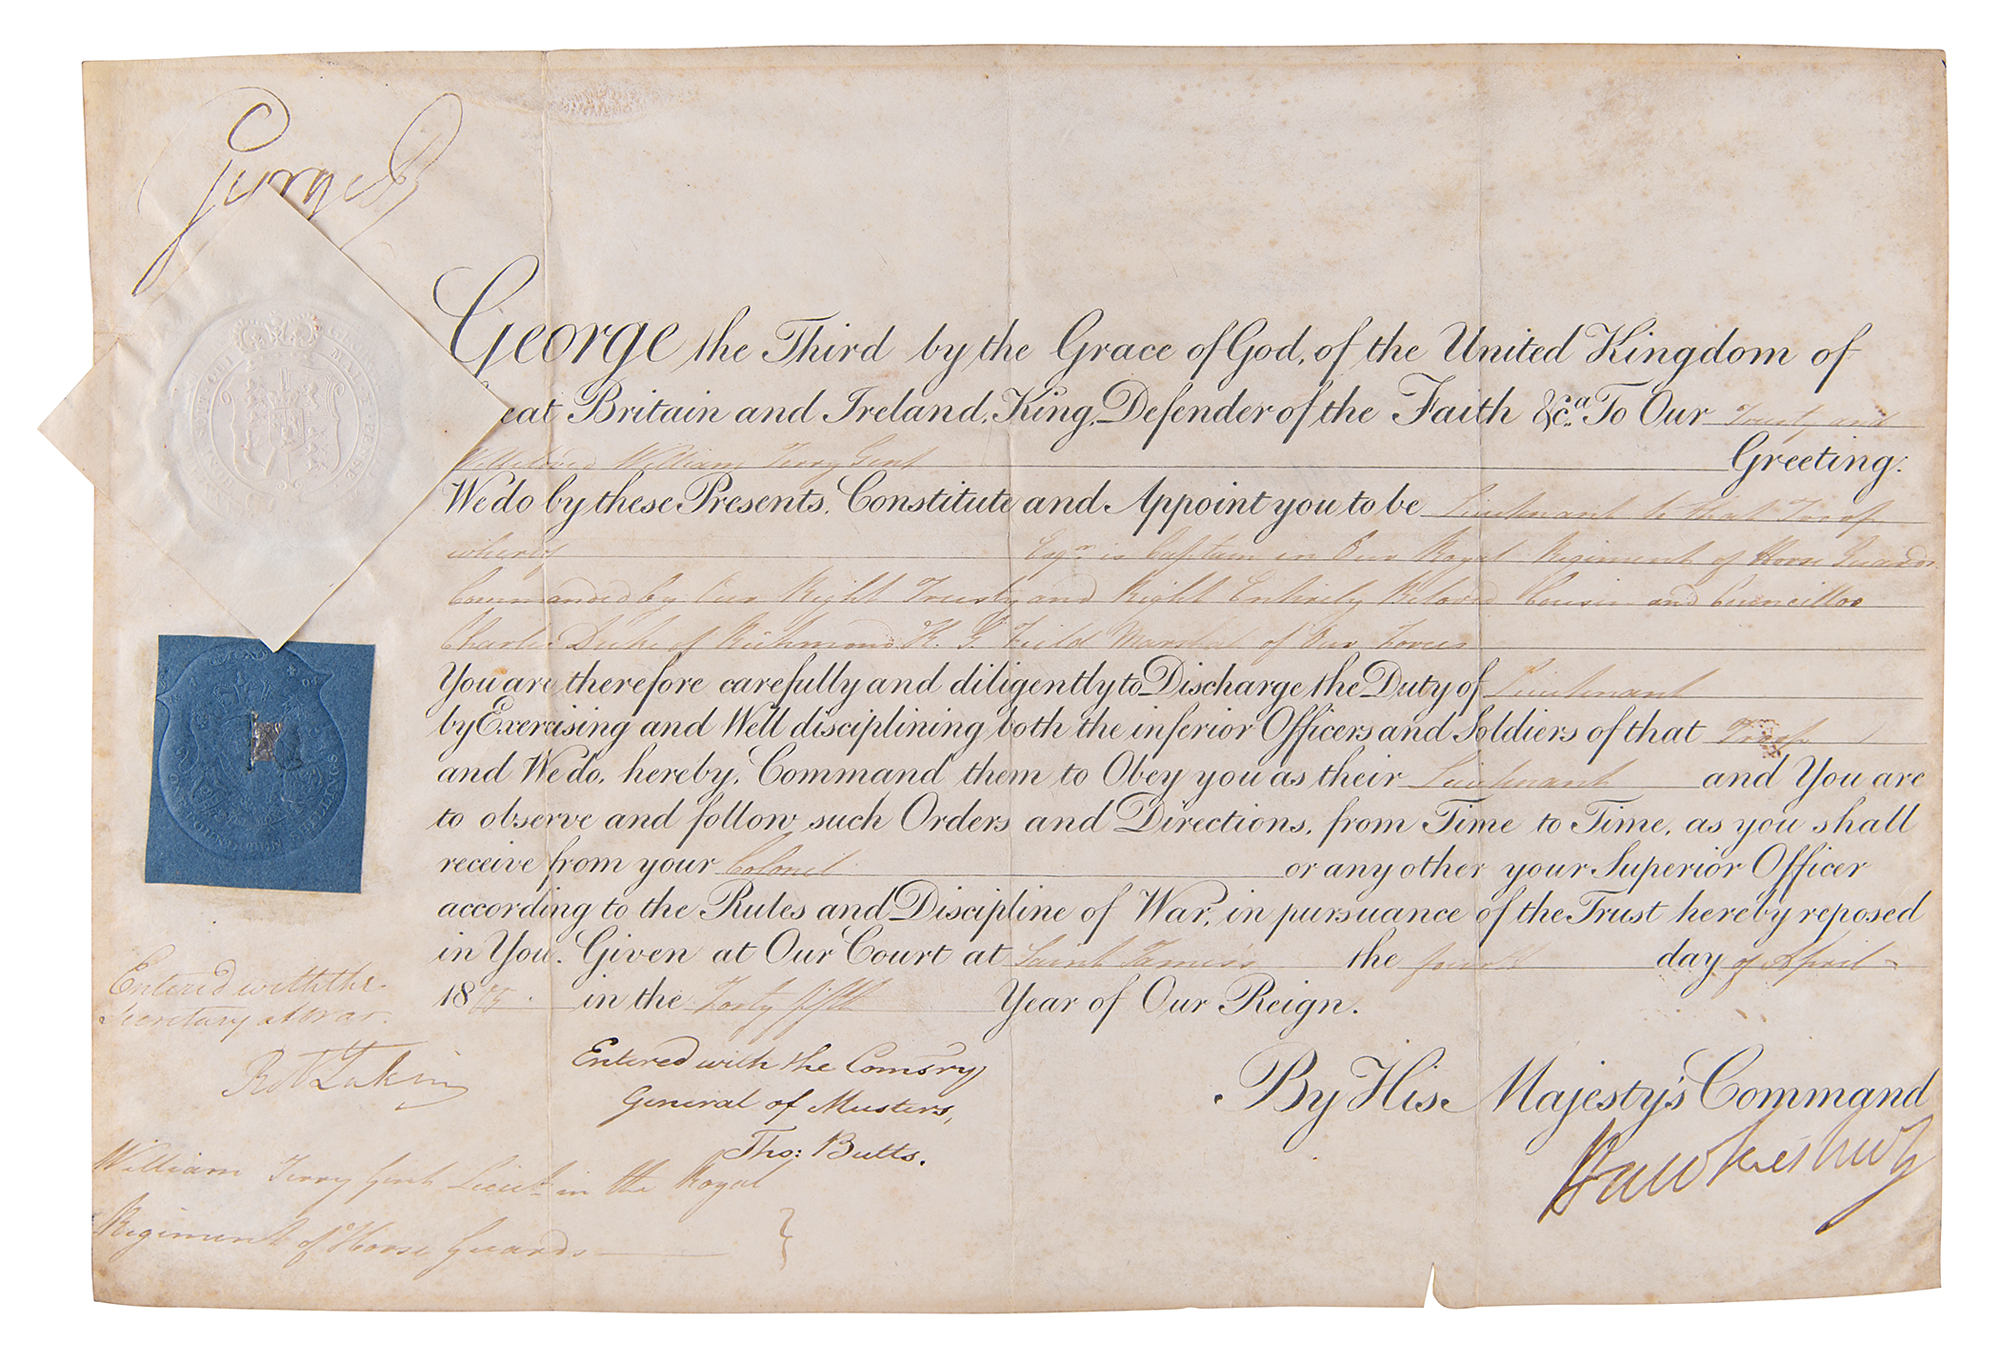 George R
George the Third by the Grace of God, of the United Kingdom of
eat Britain and Ireland, King, Defender of the Faith &c.a To Our Trusty and
Wellbeloved William Terry Gent Greeting:
We do by these Presents, Constitute and Appoint you to be Lieutenant to that Troop
whereof Esqr. is Captain in Our Royal Regiment of Horse Guards
Commanded by Our Right Trusty and Right Entirely Beloved Cousin and Councillor
Charles Duke of Richmond K. G. Field Marshal of Our Forces
You are therefore carefully and diligently to Discharge the Duty of Lieutenant
by Exercising and Well disciplining both the inferior Officers and Soldiers of that Troop
and We do, hereby, Command them to Obey you as their Lieutenant and You are
to observe and follow such Orders and Directions, from Time to Time, as you shall
receive from your Colonel or any other your Superior Officer
according to the Rules and Discipline of War, in pursuance of the Trust hereby reposed
in You. Given at Our Court at Saint James's the fourth day of April
1805. in the Forty fifth Year of Our Reign.
By His Majesty's Command
Hawkesbury
Entered with the
Secretary at War.
Entered with the Comsry
General of Musters,
Thos: Butts.
William Terry Gent Lieut. in the Royal
Regiment of Horse Guards